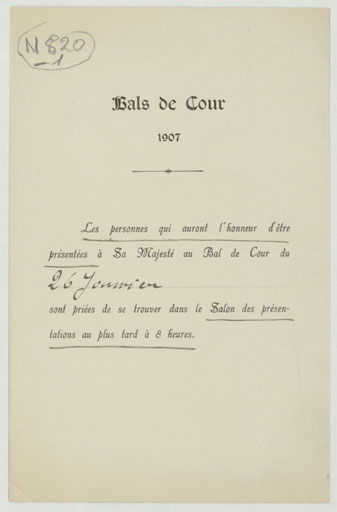 N 820
-1
Bals de Cour
1907
Les personnes qui auront l'honneur d'être
présentées à Sa Majesté au Bal de Cour du
26 Janvier
sont priées de se trouver dans le Salon des présen-
tations au plus tard à 8 heures.